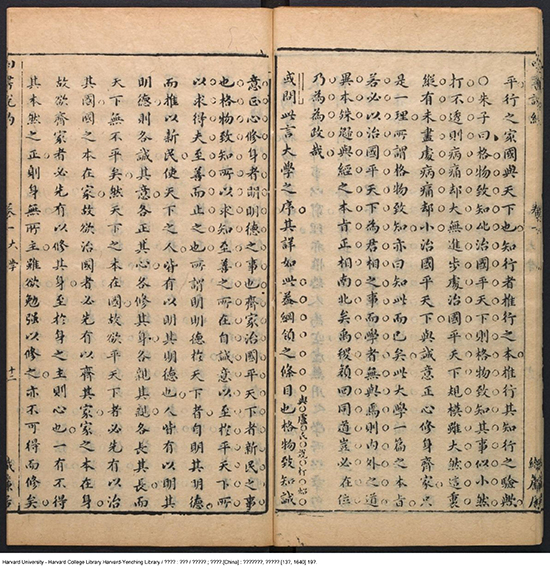 平行之家國與天下也知行者推行之本推行其知行之驗歟
○朱子曰格物致知比治國平天下則格物致知其事似小然
打不透則病痛却大無進步處治國平天下規模雖大然這裏
縱有未盡處病痛却小治國平天下與誠意正心修身齊家只
是一理所謂格物致知亦曰知此而已矣此大學一篇之本旨
若必以治國平天下為君相之事而學者無與焉則內外之道
異本殊趣與經之本旨正相南北矣禹稷顏回同道豈必在位
乃為為政哉
或問此言大學之序其詳如此蓋綱領之條目也格物致知誠
意正心修身者明明德之事也齊家治國平天下者新民之事
也格物致知所以求知至善之所在自誠意以至於平天下所
以求得夫至善而止之也所謂明明德於天下者自明其明德
而推以新民使天下之人皆有以明其明德也人皆有以明其
明德則各誠其意各正其心各修其身各親其親各長其長而
天下無不平矣然天下之本在國故欲平天下者必先有以治
其國國之本在家故欲治國者必先有以齊其家家之本在身
故欲齊家者必先有以修其身至於身之主則心也一有不得
其本然之正則身無所主雖欲勉强以修之亦不可得而修矣
卷一大學
十二
Harvard University - Harvard College Library Harvard-Yenching Library / ???? : ??? / ????? ; ???? [China] : ???????, ????? [13?, 1640] 19?